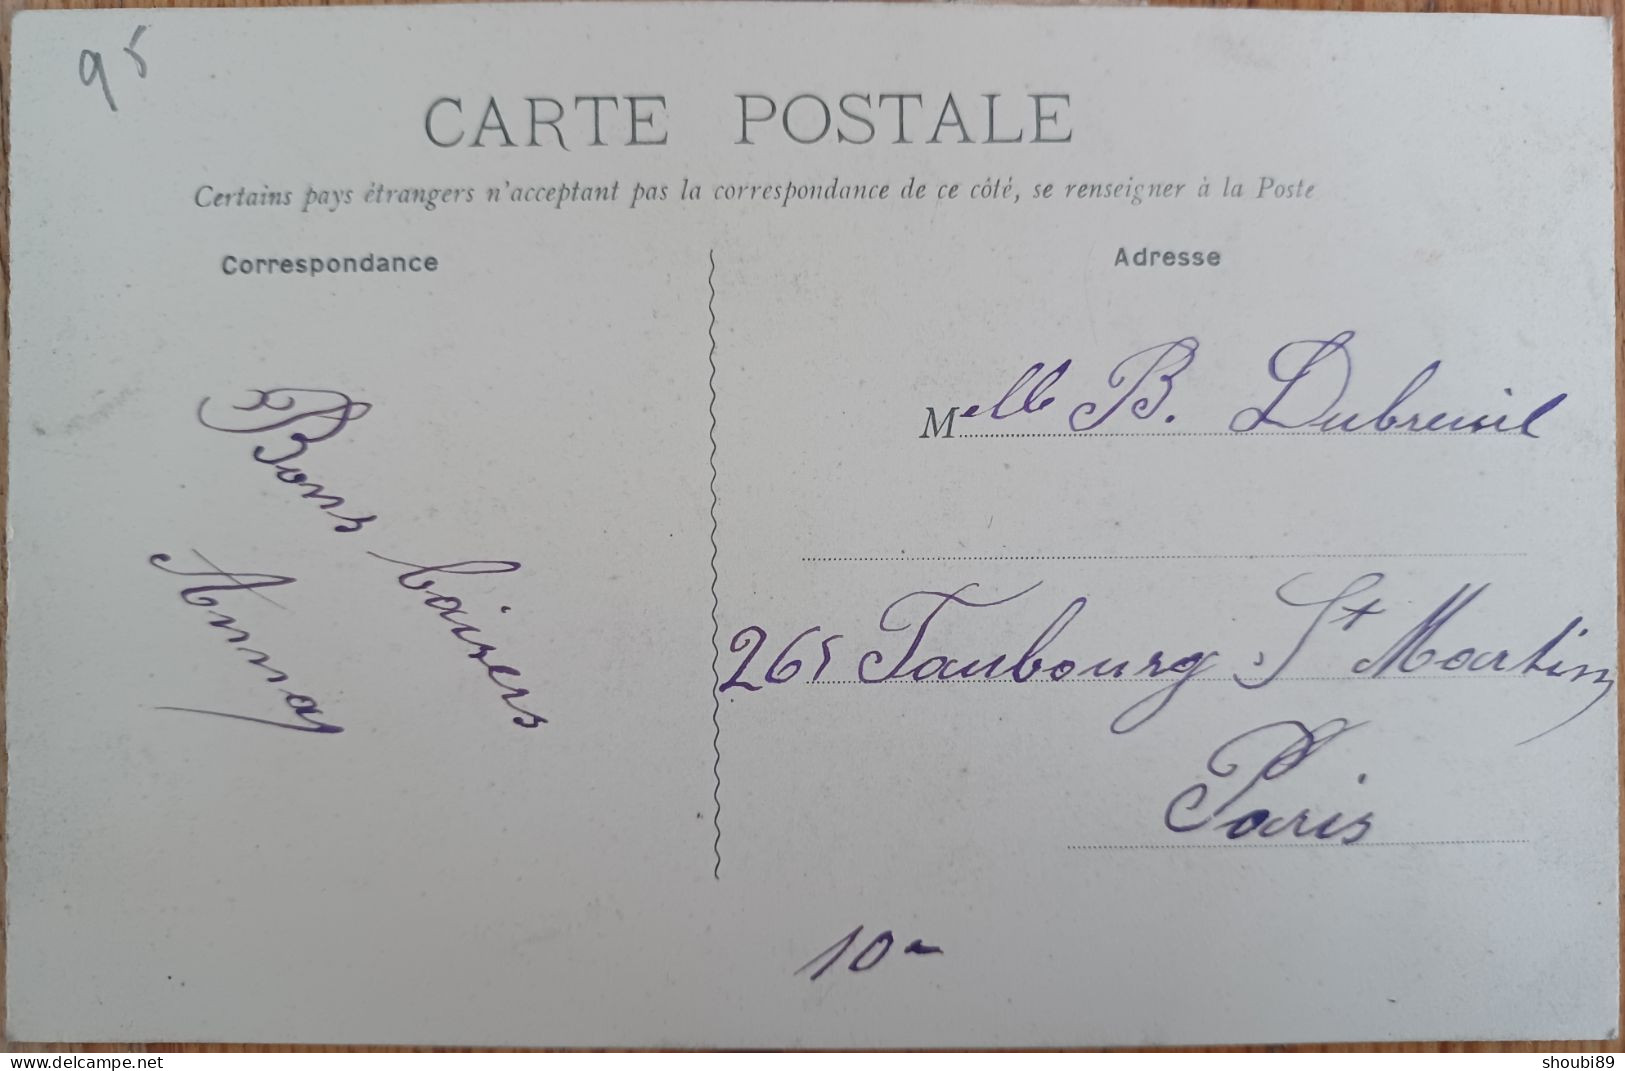 95
CARTE POSTALE
Certains pays étrangers n'acceptant pas la correspondance de ce côté, se renseigner à la Poste
Correspondance
Bons baisers
Anna
Adresse
Melle B. Dubreuil
265 Faubourg St Martin
Paris
10-
shoubi89